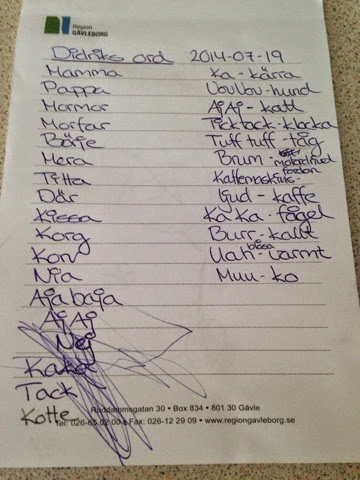 Region
GÄVLEBORG
Didriks ord 2014-07-19
Mamma
Pappa
Mormor
Morfar
Börje
Mera
Titta
Där
Kissa
Korg
Kon
Nia
Aja baja
Aj Aj
Nej
Kaka
Tack
Kotte
Ka - kärra
VovVov - hund
AjAj - katt
Ticktack - klocka
Tuff tuff - tåg
Brum - bil/motordrivet fordon
Kaffemaskins-
ljud - kaffe
Ka Ka - fågel
Burr - kallt
blåsa
Vah - varmt
Muu - ko
Ruddammsgatan 30 • Box 834 • 801 30 Gävle
Tel: 026-65 02 00 • Fax: 026-12 29 09 • www.regiongavleborg.se